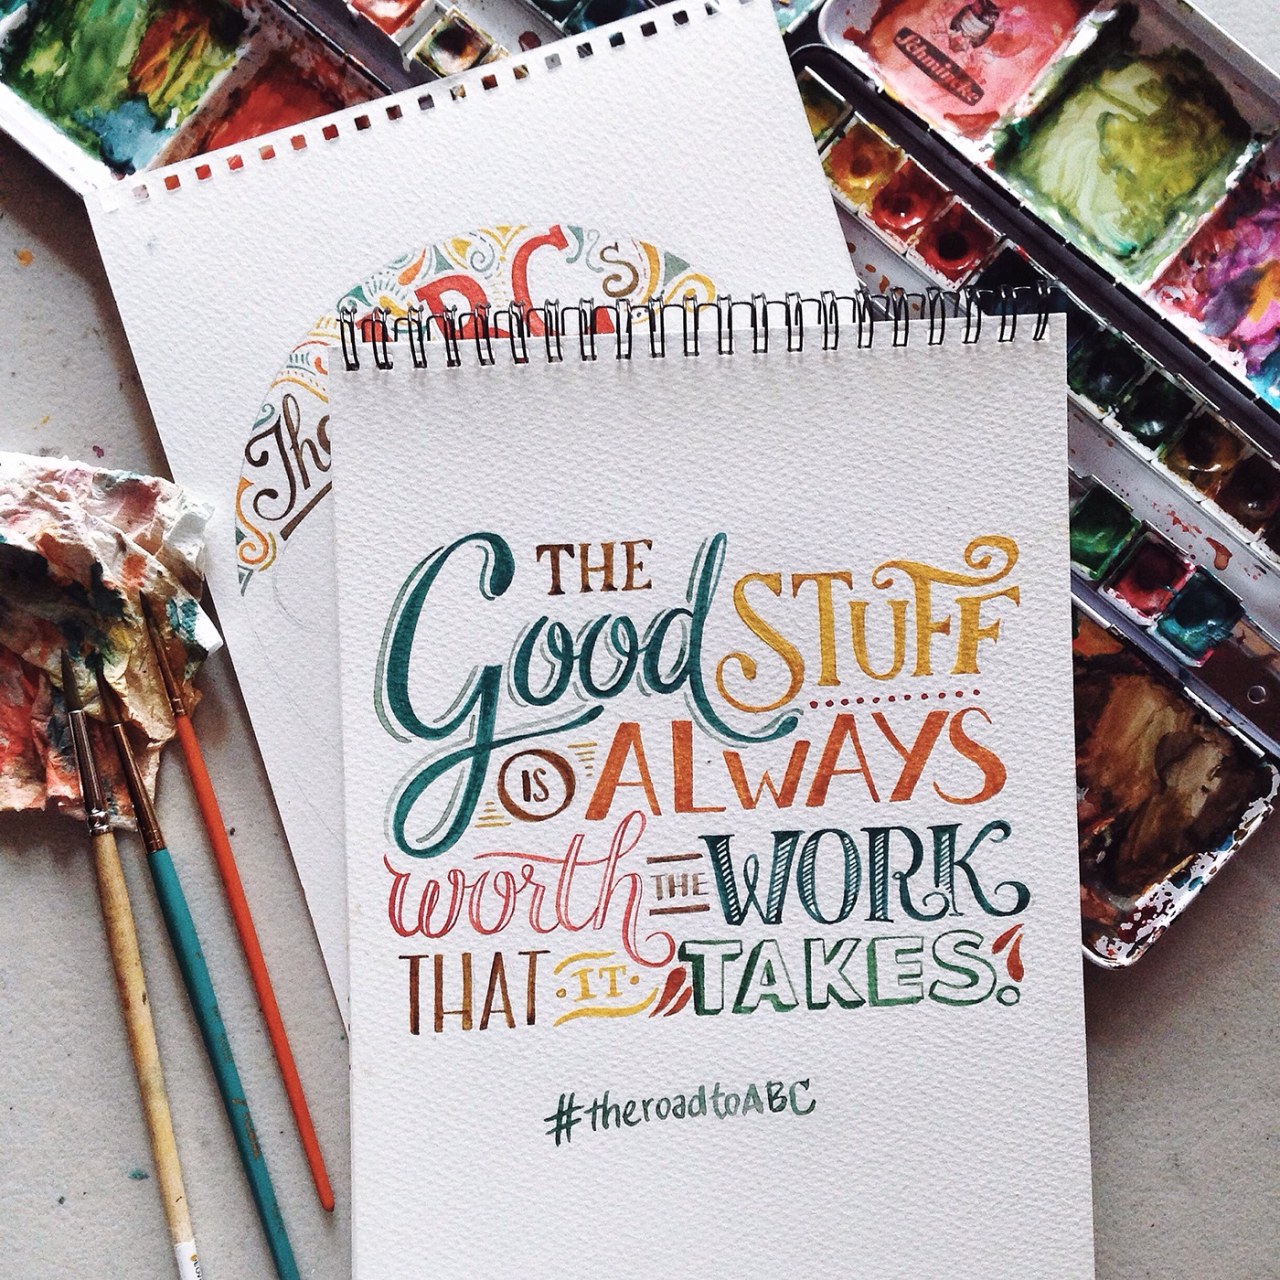 Schmincke
THE
Good STUFF
IS ALWAYS
worth THE WORK
THAT IT TAKES!
#theroadtoABC